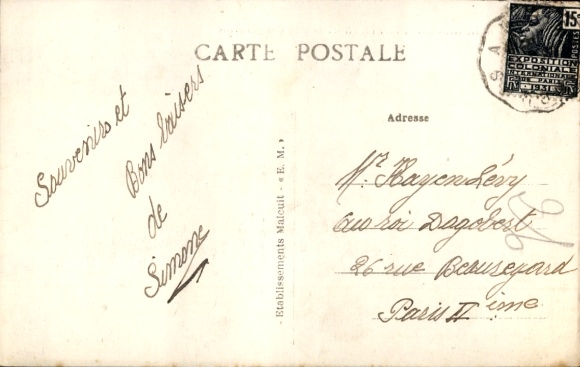 CARTE POSTALE
Souvenirs et
Bons baisers
de
Simone
- Etablissements Malcuit - « E. M. »
Adresse
Mr Hayen Lévy
au roi Dagobert
26 rue Beauregard
Paris II ème
15c
POSTES
EXPOSITION
COLONIALE
INTERNATIONALE
DE PARIS
1931
RF